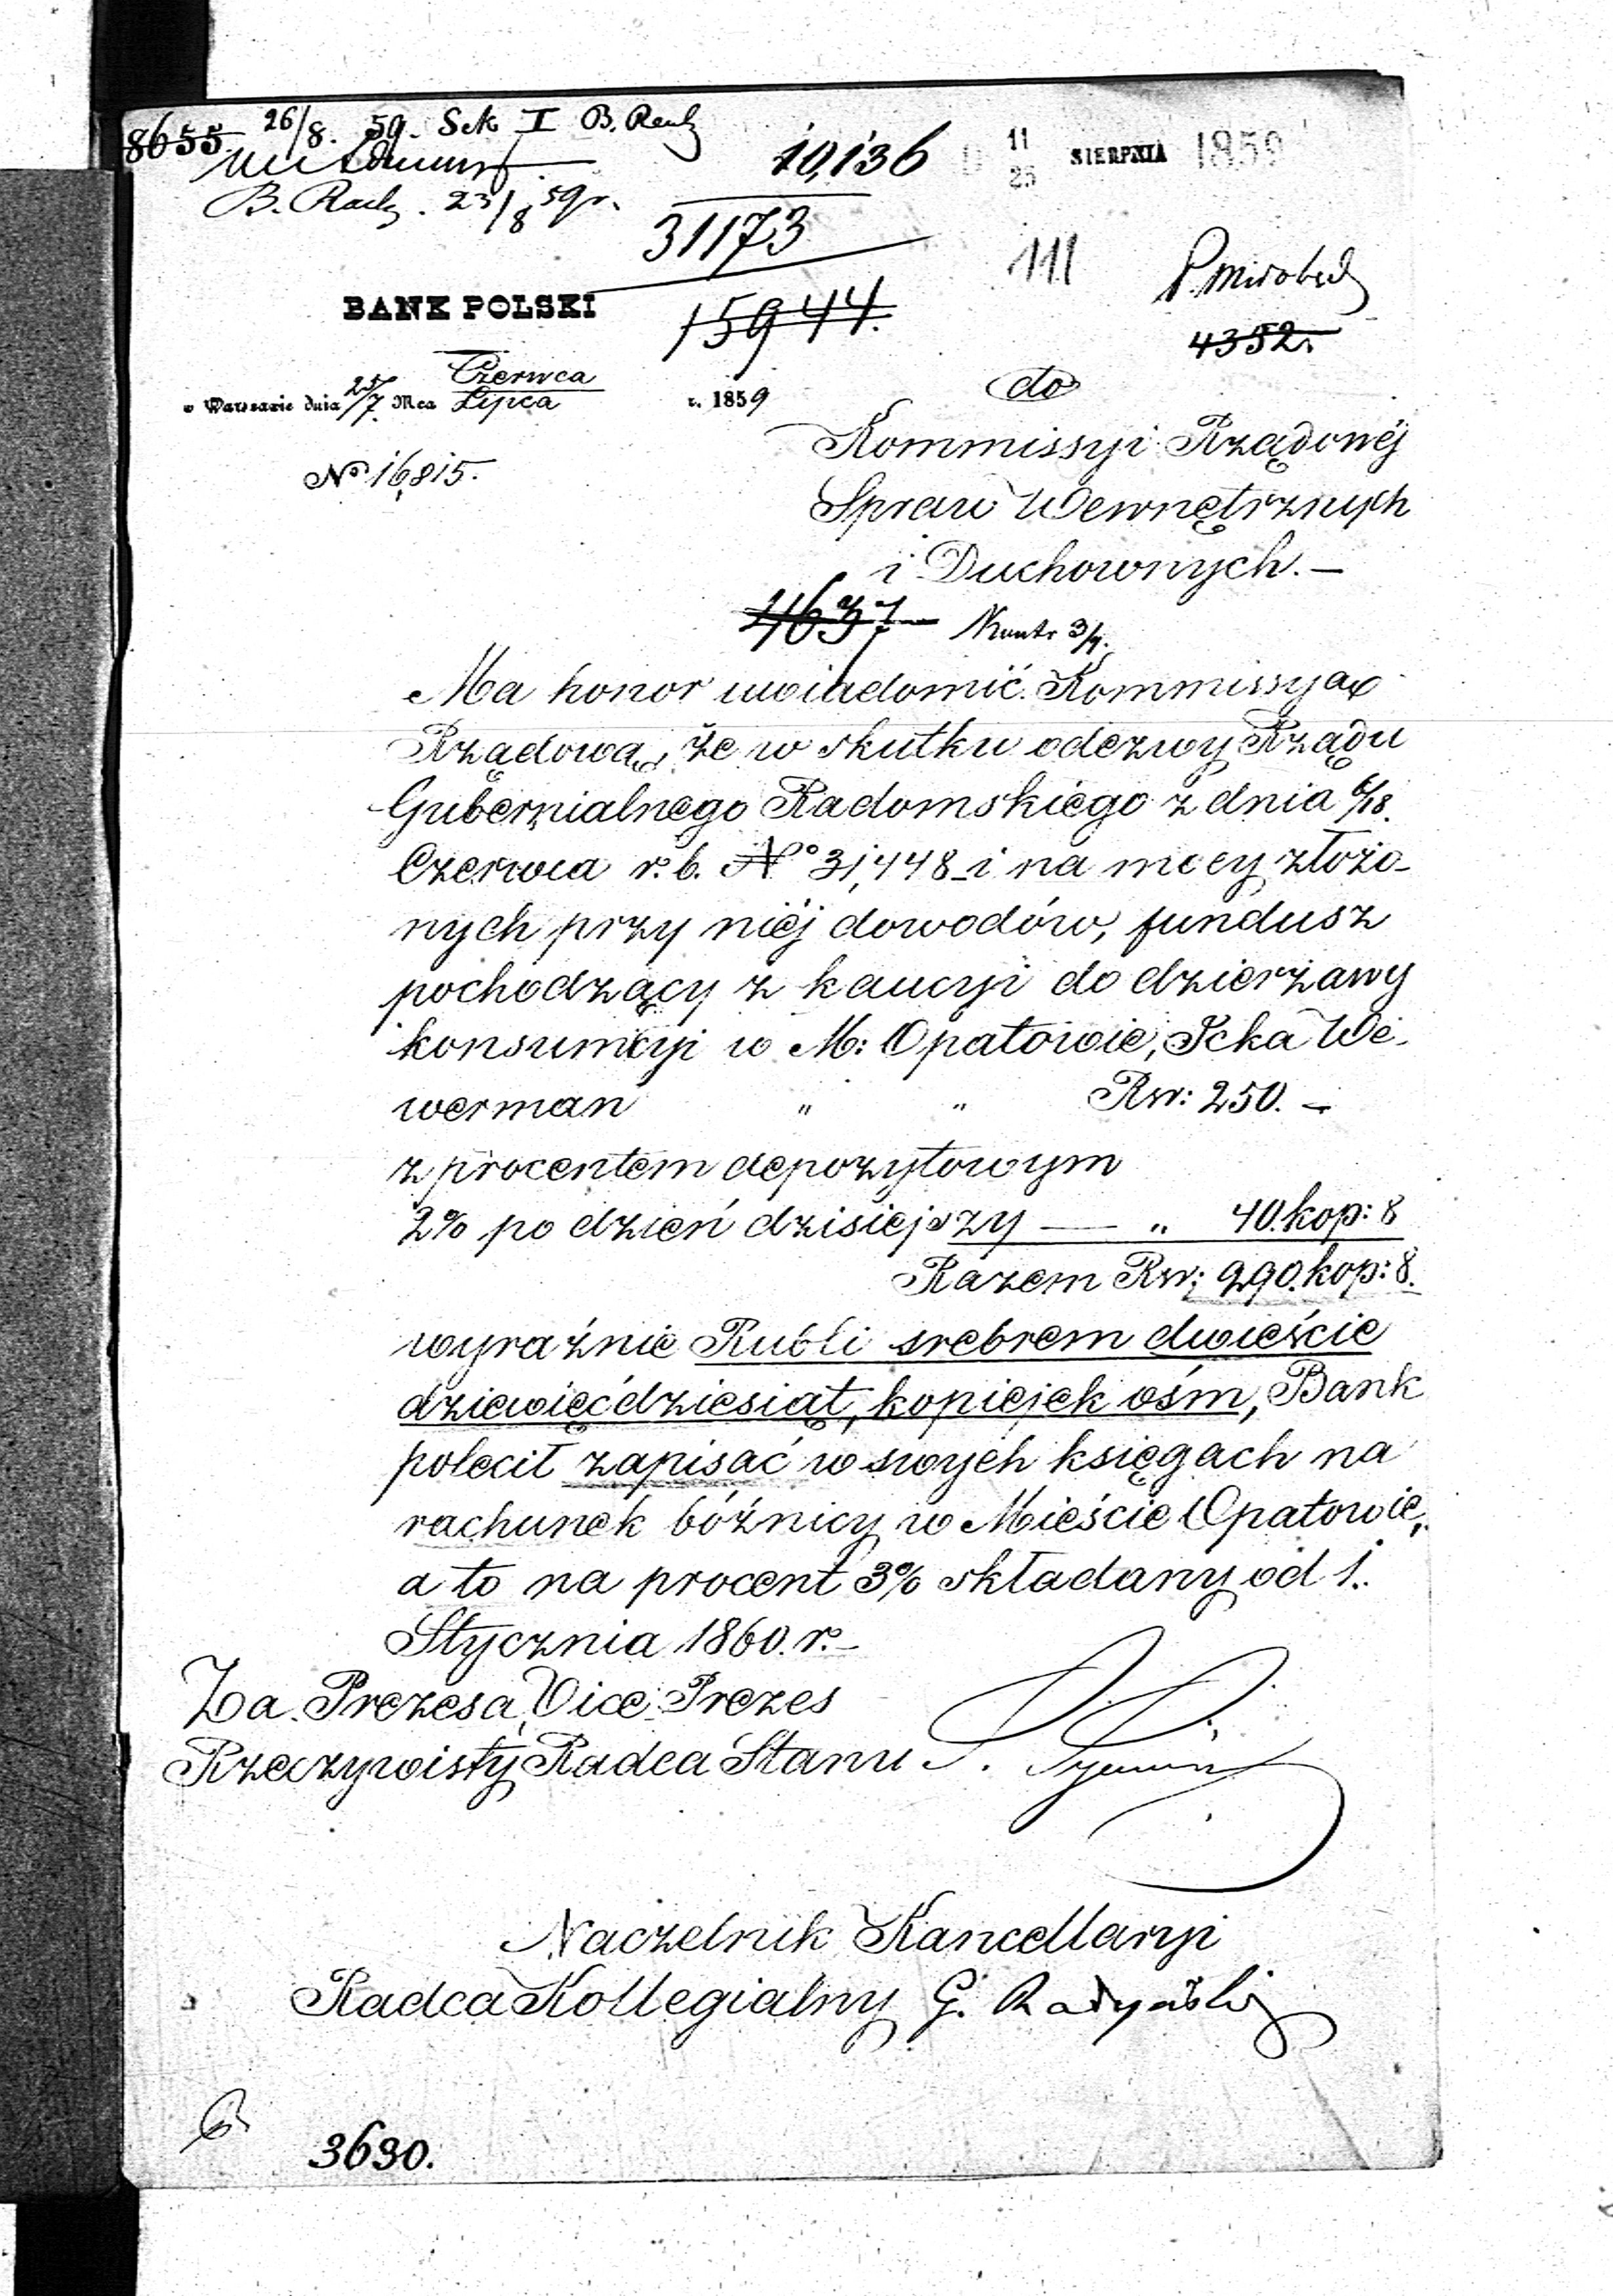 8655 26/8. 59. Sek I B. Radz
10,136 11/23 SIERPNIA 1859
B. Radz. 23/8 59 r.
31173
111
BANK POLSKI
15944.
4352.
w Warszawie dnia 25/7 Mca Czerwca/Lipca r. 1859
do
Kommissyi Rządowéj
No 16,815.
Spraw Wewnętrznych
i Duchownych. —
4637
Ma honor uwiadomić Kommissyą
Rządową, że w skutku odezwy Rządu
Gubernialnego Radomskiego z dnia 6/18.
Czerwca r. b. No 31,448 i na mocy złożo-
nych przy niéj dowodów, fundusz
pochodzący z kaucyi do dzierżawy
konsumcyi w M: Opatowie, Icka We-
werman " " Rsr: 250. —
z procentem depozytowym
2% po dzień dzisiejszy — " 40. kop: 8
Razem Rsr: 290. kop: 8.
wyraźnie Rubli srebrem dwieście
dziewięćdziesiąt, kopiejek ośm, Bank
polecił zapisać w swych księgach na
rachunek bóżnicy w Mieście Opatowie,
a to na procent 3% składany od 1.
Stycznia 1860. r. —
Za Prezesa, Vice-Prezes
Rzeczywisty Radca Stanu
Naczelnik Kancellaryi
Radca Kollegialny G.
3630.